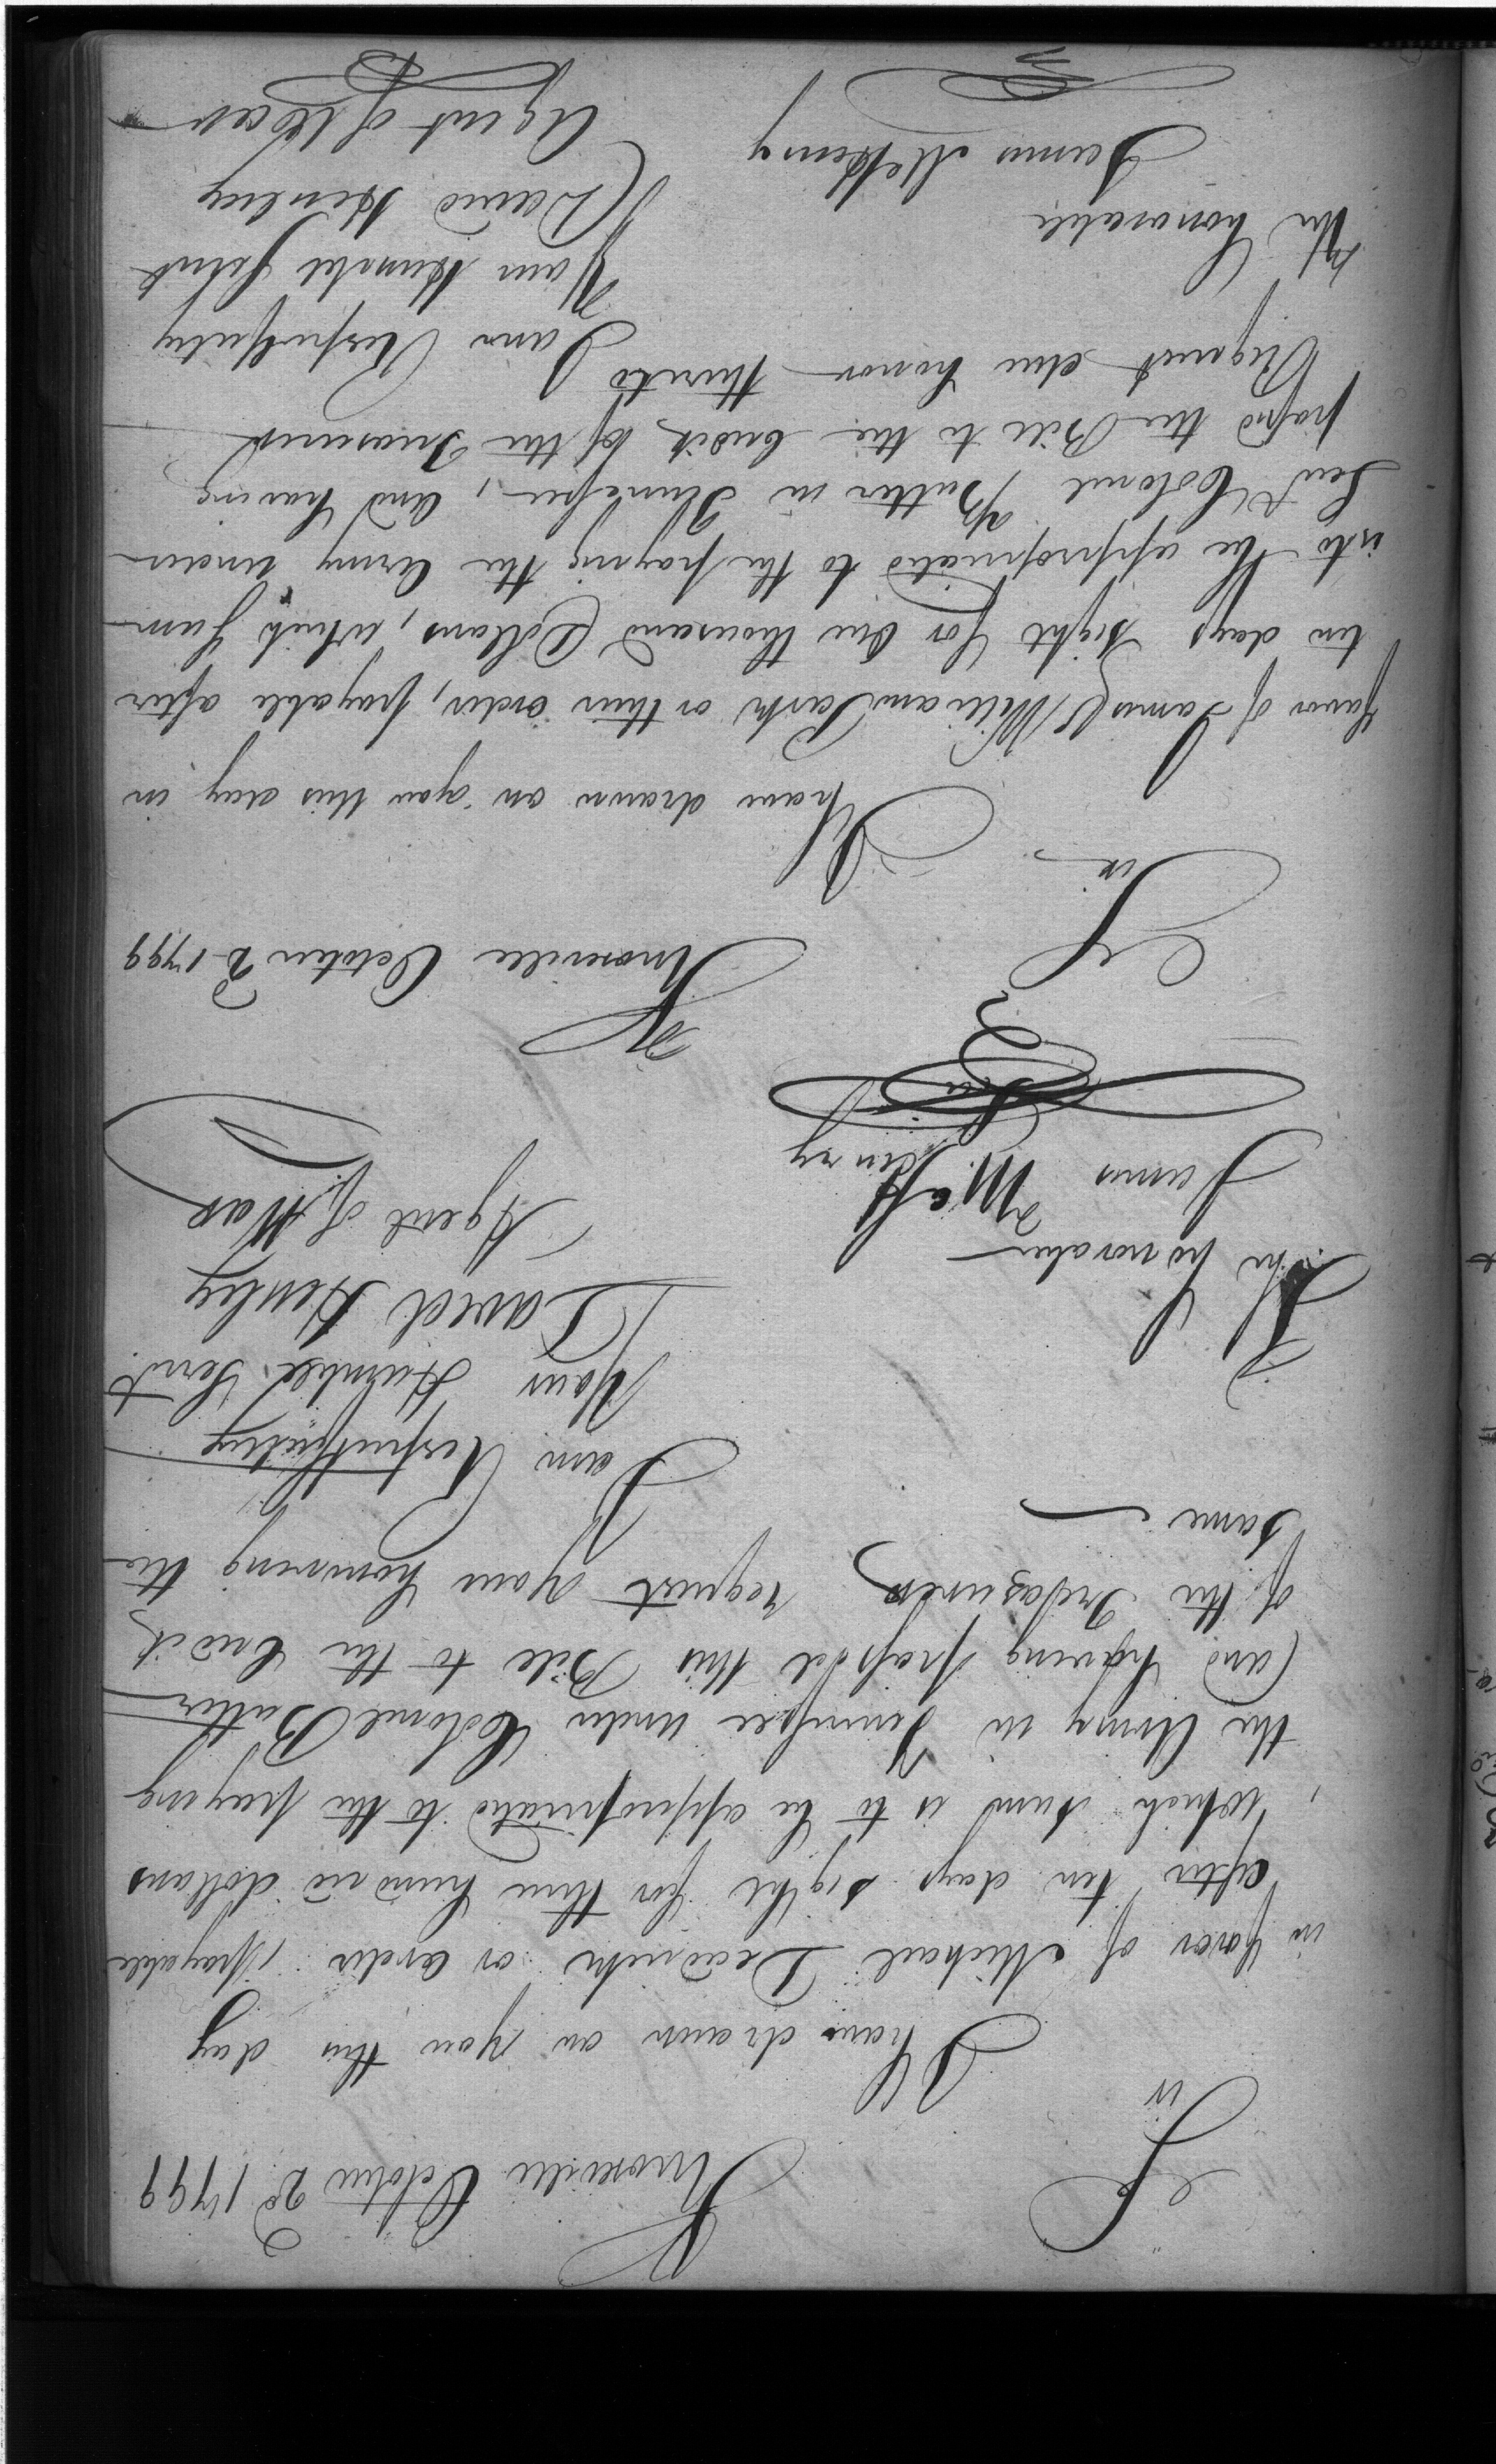 Knoxville October 2d 1799
Sir
I have drawn on you this day
in favor of Michael Deadrick or order, payable
after ten days sight for three hundred dollars
, which sum is to be appropriated to the paying
the Army in Tennessee under Colonel Butler
and having passed this Bill to the Credit
of the Treasurer request your honouring the
same
I am Respectfully
Your Humble Servt
David Henley
Agent of War
The honorable
James McHenry
Knoxville October 2d 1799
Sir
I have drawn on you this day in
favor of James & William Park or their order, payable after
ten days sight for One thousand Dollars, which Sum
is to be appropriated to the paying the Army under
Leut Colonel Butler in Tennessee, and having
passed the Bill to the Credit of the Treasurer
Request due honor thereto
I am Respectfully
Your Humble Servt
David Henley
Agent of War
The honorable
James McHenry